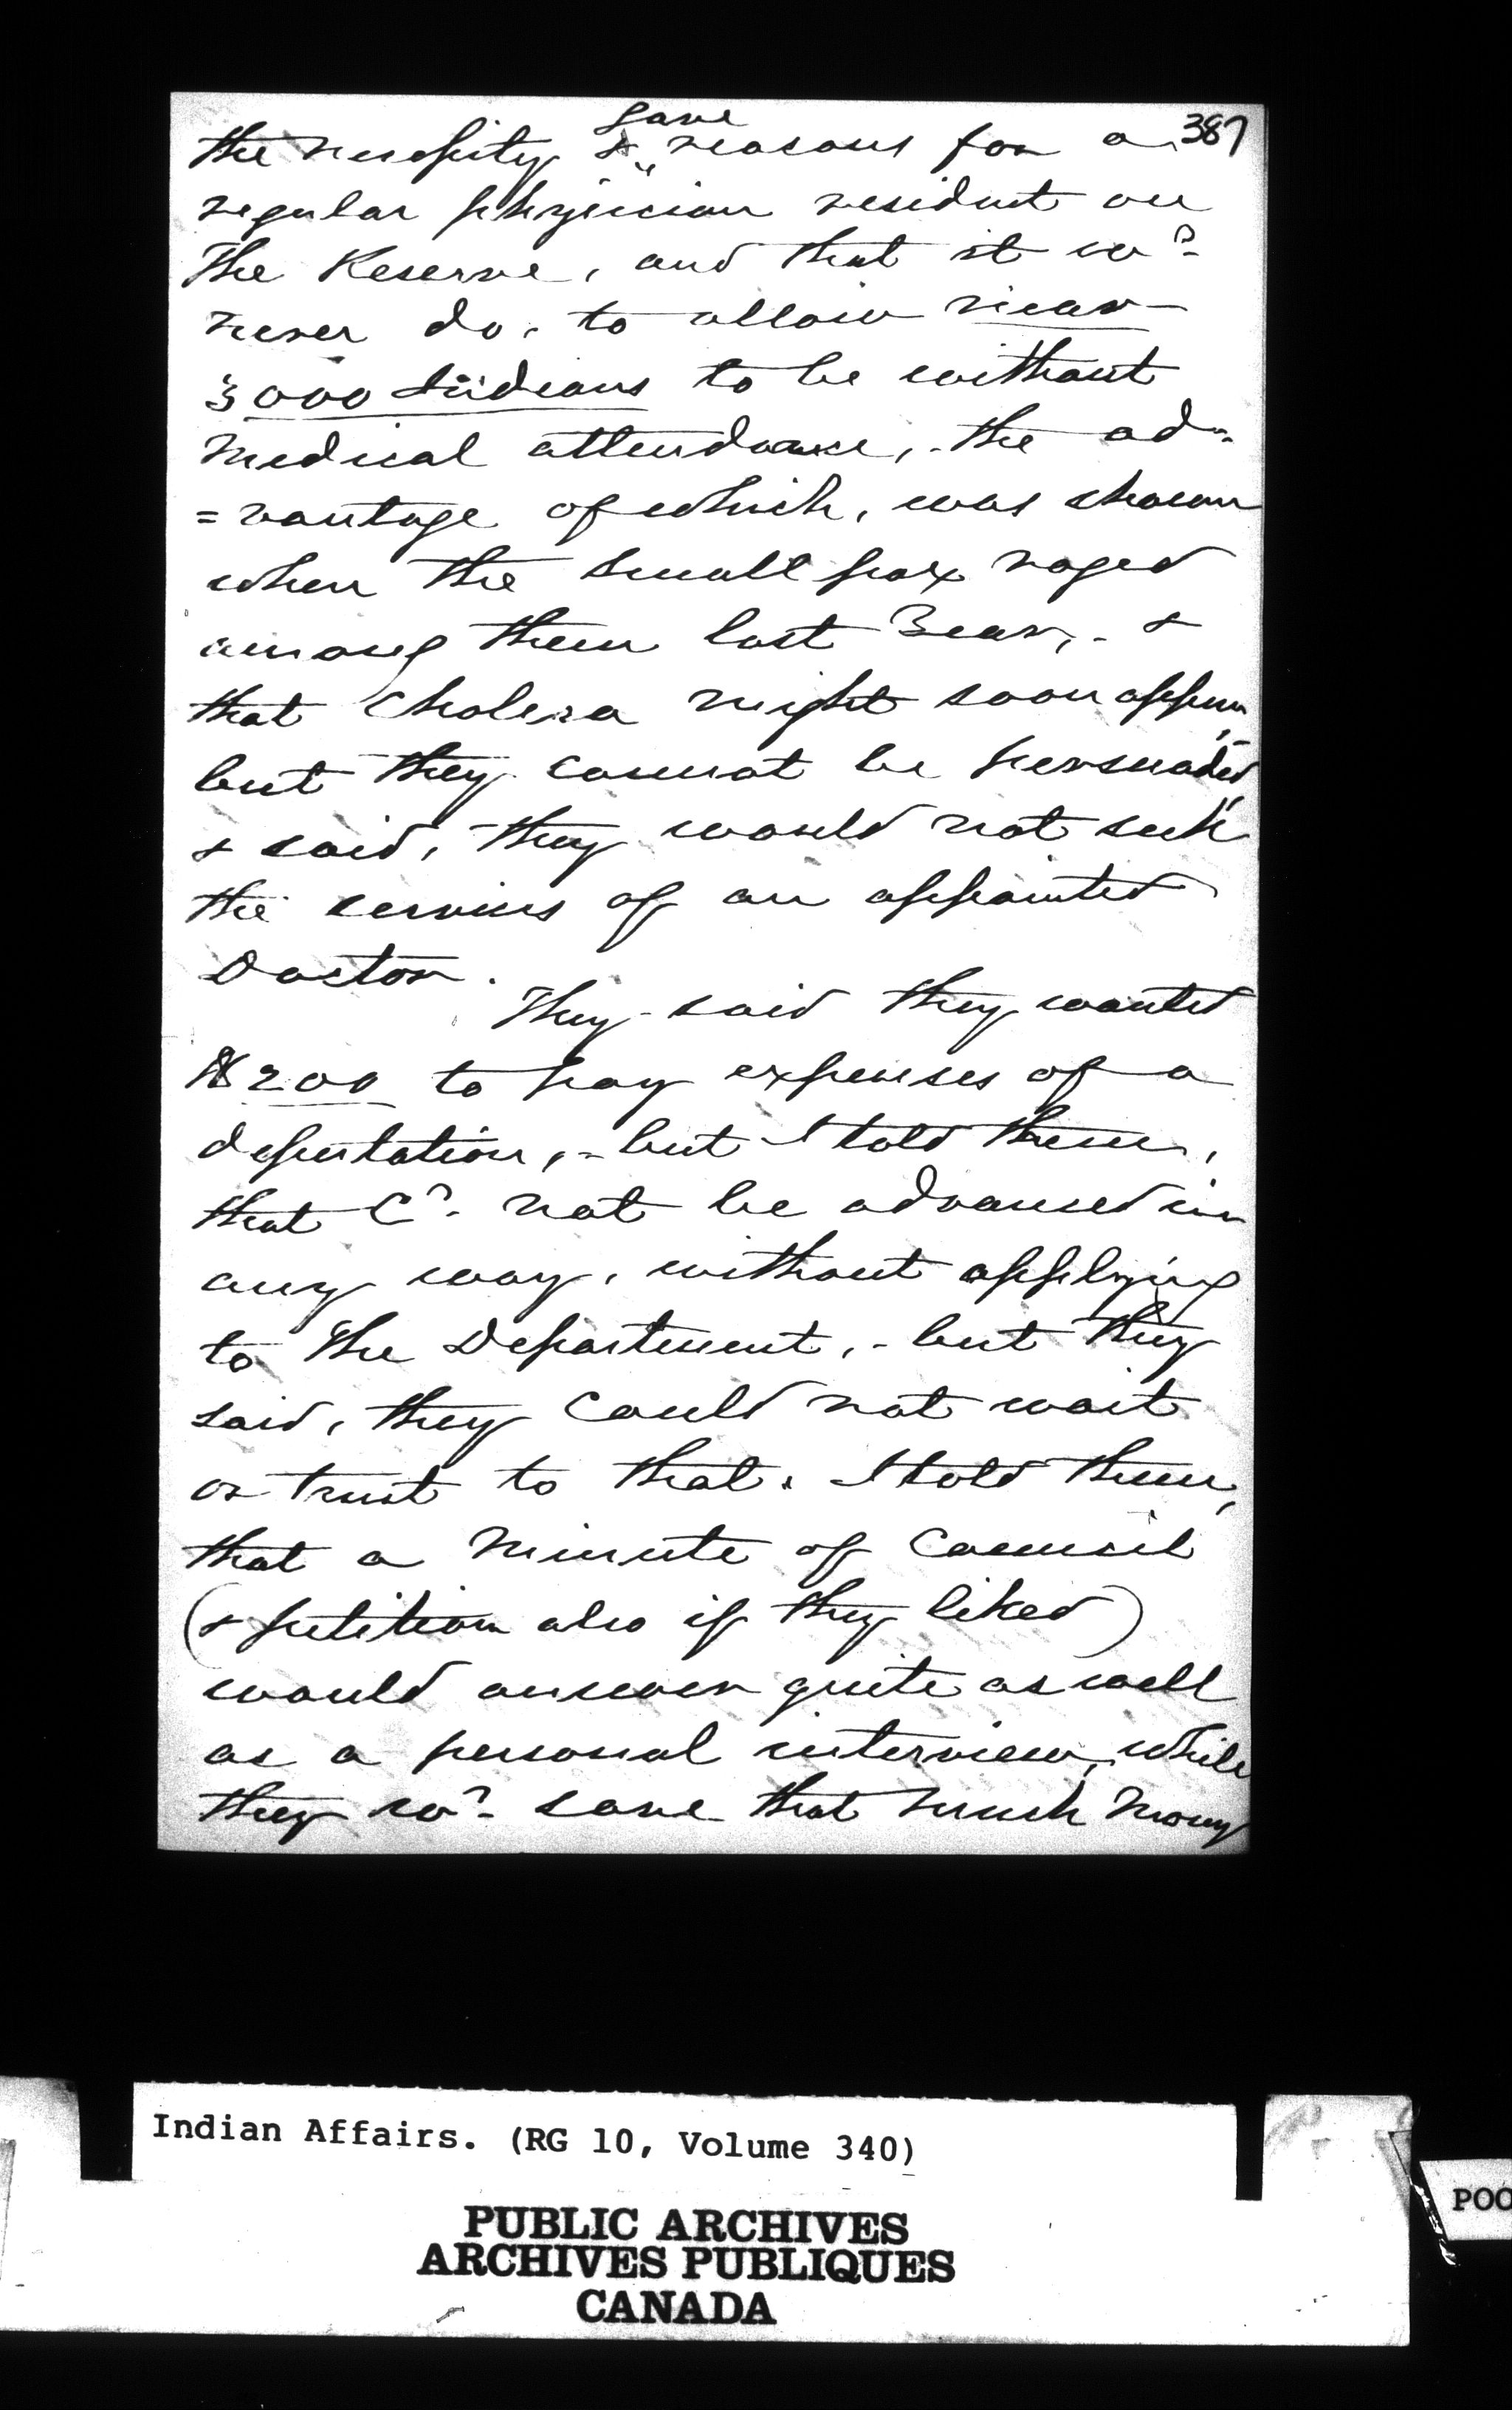 387
the necessity & gave reasons for a
regular physician resident on
the Reserve, and that it wd.
never do, to allow near
3000 Indians to be without
medical attendance, - the ad-
=vantage of which, was shown
when the small pox raged
among them last Year, - &
that Cholera might soon appear,
but they cannot be persuaded,
& said, they would not seek
the services of an appointed
Doctor.
They said they wanted
$200 to pay expenses of a
deputation, - but I told them,
that Cd. not be advanced in
any way, without applying
to the Department, - but they
said, they could not wait
or trust to that. I told them,
that a Minute of Council
(& petition also if they liked)
would answer quite as well
as a personal interview, while
they wd. save that much money
Indian Affairs. (RG 10, Volume 340)
PUBLIC ARCHIVES
ARCHIVES PUBLIQUES
CANADA
POO